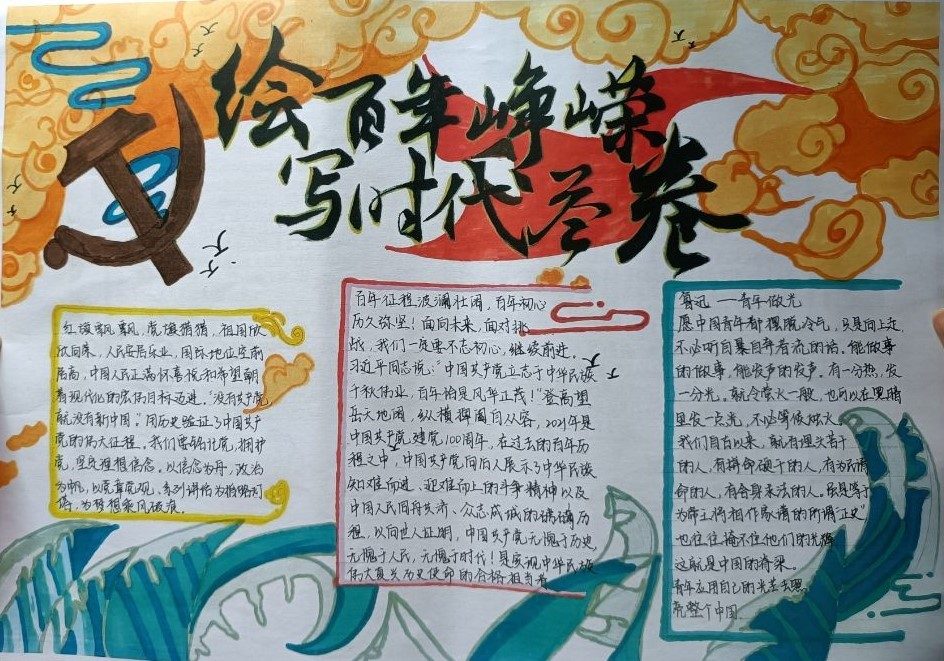 绘百年峥嵘
写时代答卷
红旗飘飘，党旗猎猎，祖国欣
欣向荣，人民安居乐业，国际地位空前
居高，中国人民正满怀喜悦和希望朝
着现代化的宏伟目标迈进。"没有共产党
就没有新中国"用历史验证了中国共产
党的伟大征程，我们要铭记党，拥护
党，坚定理想信念。以信念为舟，政治
为帆，以党章党规、系列讲话为指路灯
塔，为梦想乘风破浪。
百年征程波澜壮阔，百年初心
历久弥坚！面向未来，面对挑
战，我们一定要不忘初心，继续前进，
习近平同志说："中国共产党立志于中华民族
千秋伟业，百年恰是风华正茂！"登高望
岳天地阔，纵横捭阖自从容，2021年是
中国共产党建党100周年，在过去的百年历
程之中，中国共产党向后人展示了中华民族
知难而进、迎难而上的斗争精神以及
中国人民同舟共济、众志成城的磅礴历
程，以向世人证明，中国共产党无愧于历史
无愧于人民，无愧于时代！是实现中华民族
伟大复兴历史使命的合格担当者
鲁迅——青年做光
愿中国青年都摆脱冷气，只是向上走，
不必听自暴自弃者流的话。能做事
的做事，能发声的发声。有一分热，发
一分光。就令萤火一般，也可以在黑暗
里发一点光，不必等候炬火。
我们自古以来，就有埋头苦干
的人，有拼命硬干的人，有为民请
命的人，有舍身求法的人。虽是等于
为帝王将相作家谱的所谓"正史"
也往往掩不住他们的光辉
这就是中国的脊梁。
青年应用自己的光芒去照
亮整个中国.